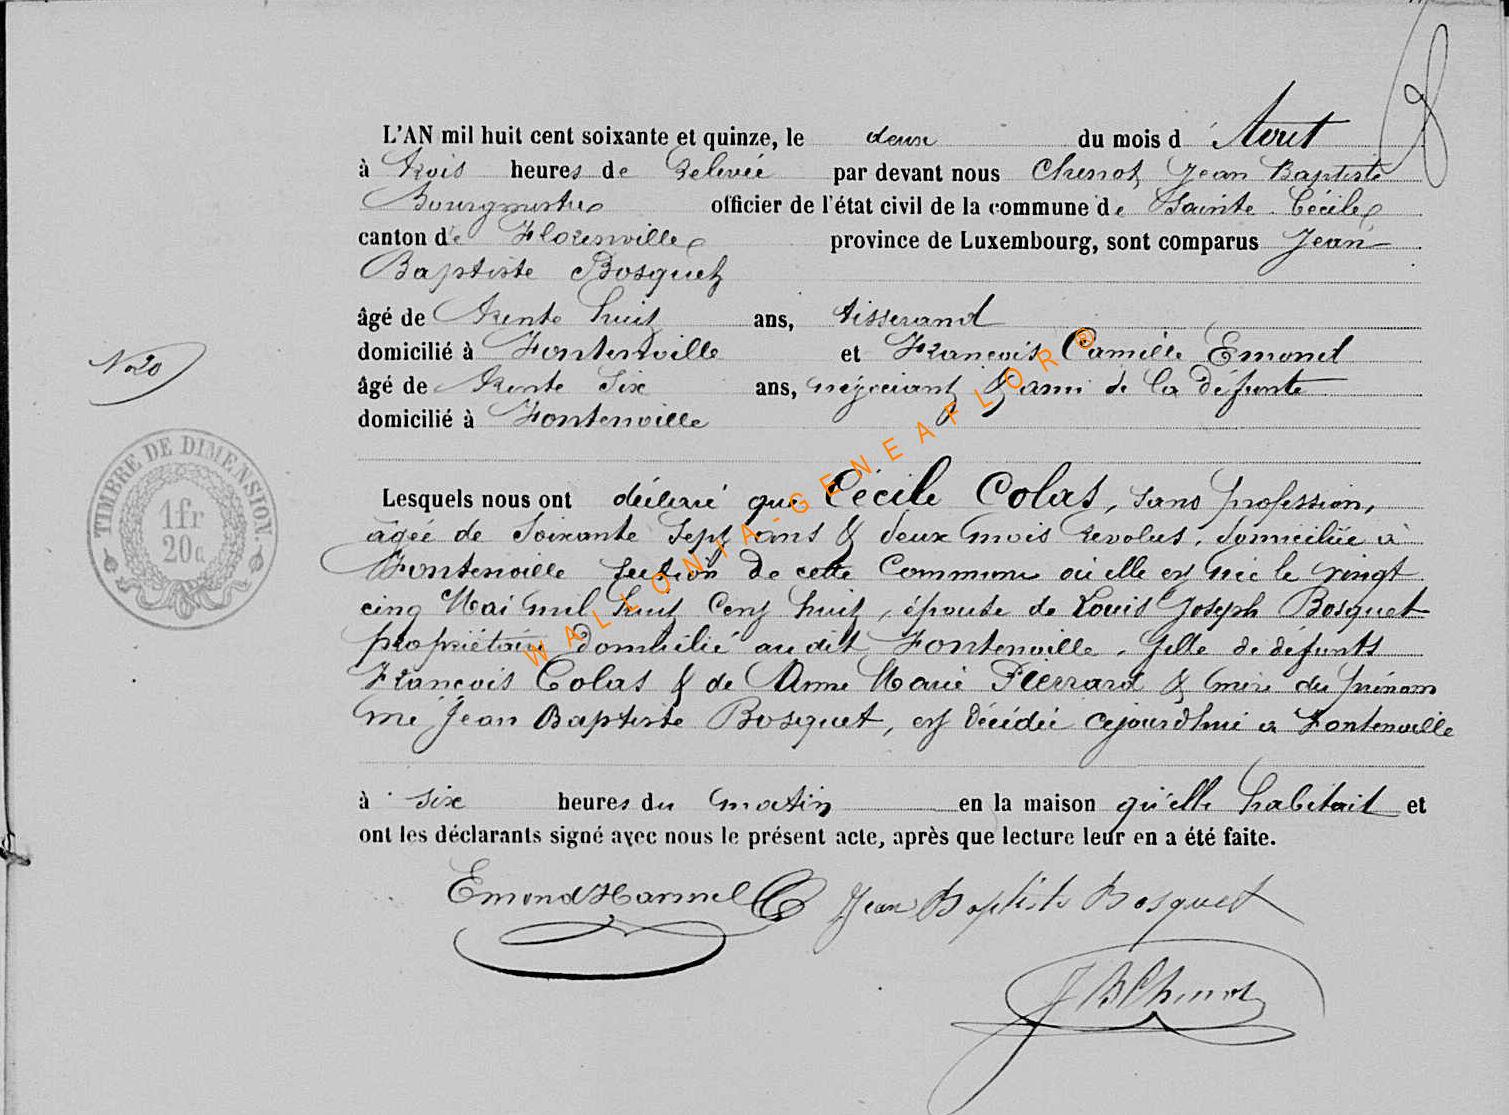 L'AN mil huit cent soixante et quinze, le deux du mois d'Aout
à trois heures de relevée par devant nous Chenot Jean Baptiste
Bourgmestre officier de l'état civil de la commune de Sainte Cécile
canton de Florenville province de Luxembourg, sont comparus Jean
Baptiste Bosquet
âgé de trente huit ans, tisserand
domicilié à Fontenoille et François Camille Emond
âgé de trente six ans, négociant & ami de la défunte
domicilié à Fontenoille
N° 20
TIMBRE DE DIMENSION.
1fr
20c
Lesquels nous ont déclaré que Cécile Colas, sans profession,
agée de soixante sept ans & deux mois revolus, domiciliée à
Fontenoille section de cette Commune où elle est née le vingt
cinq Mai mil huit cent huit, épouse de Louis Joseph Bosquet
propriétaire domicilié audit Fontenoille, fille de défunts
François Colas & de Anne Marie Pierrard & mère du prénom
mé Jean Baptiste Bosquet, est décédée cejourdhui à Fontenoille
à six heures du matin en la maison qu'elle habitait et
ont les déclarants signé avec nous le présent acte, après que lecture leur en a été faite.
Emond Hamel C Jean Baptiste Bosquet
JB Chenot
WALLONIA-GENEAFLOR®